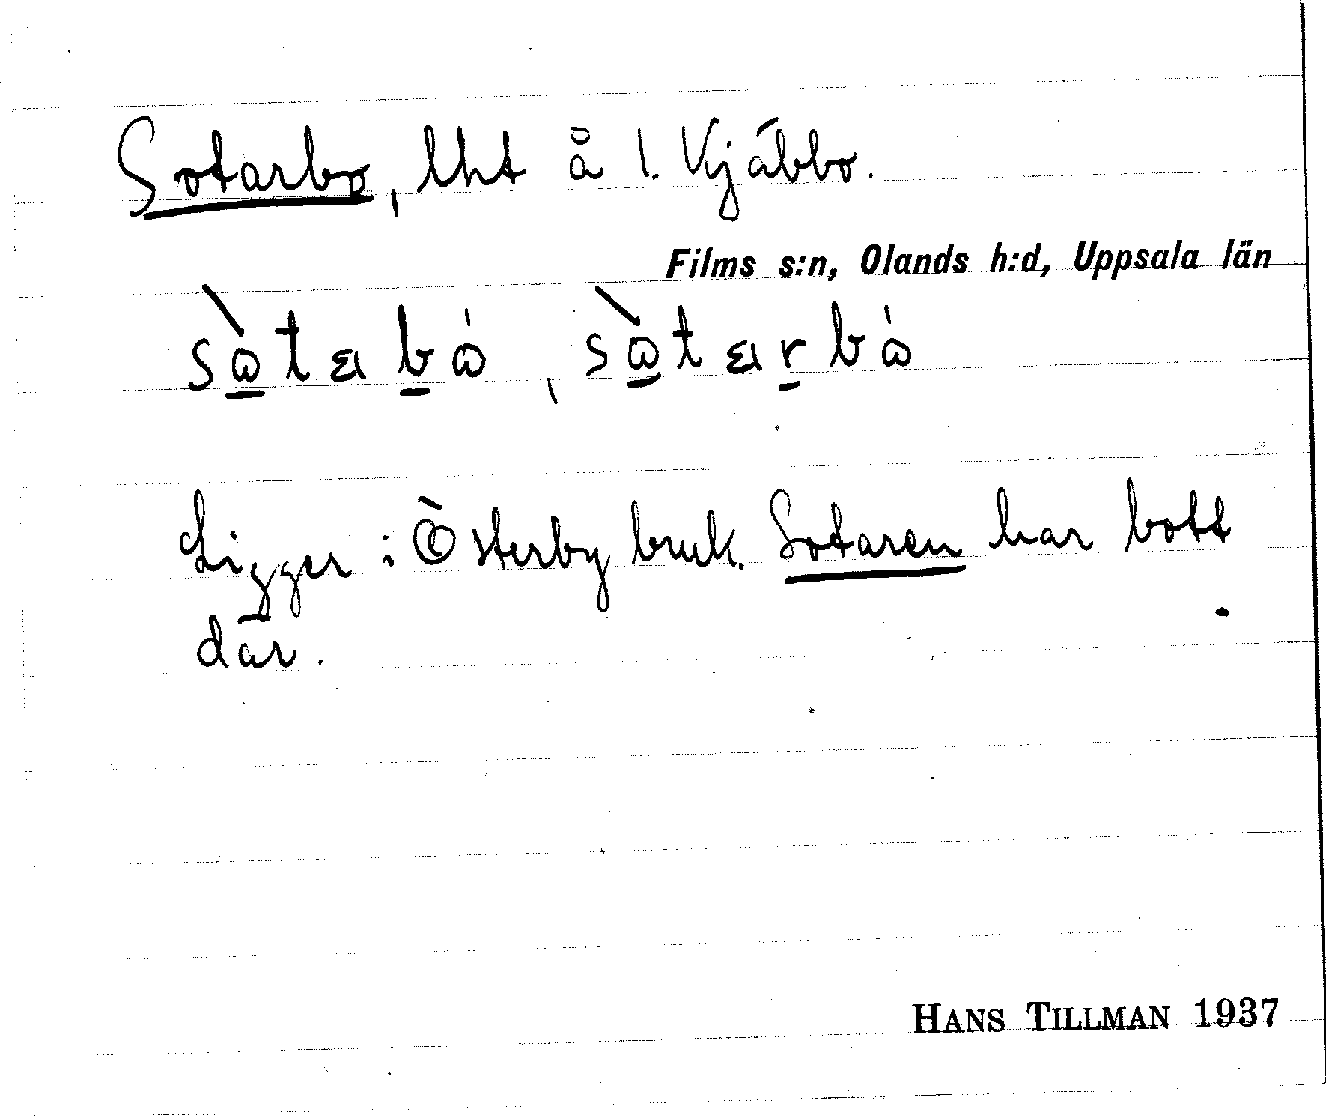 Sotarbo, lht å l. Vjäbbo.
Films s:n, Olands h:d, Uppsala län
sὼtabὼ, sὼtarbὼ
Ligger i Österby bruk. Sotaren har bott
där.
HANS TILLMAN 1937